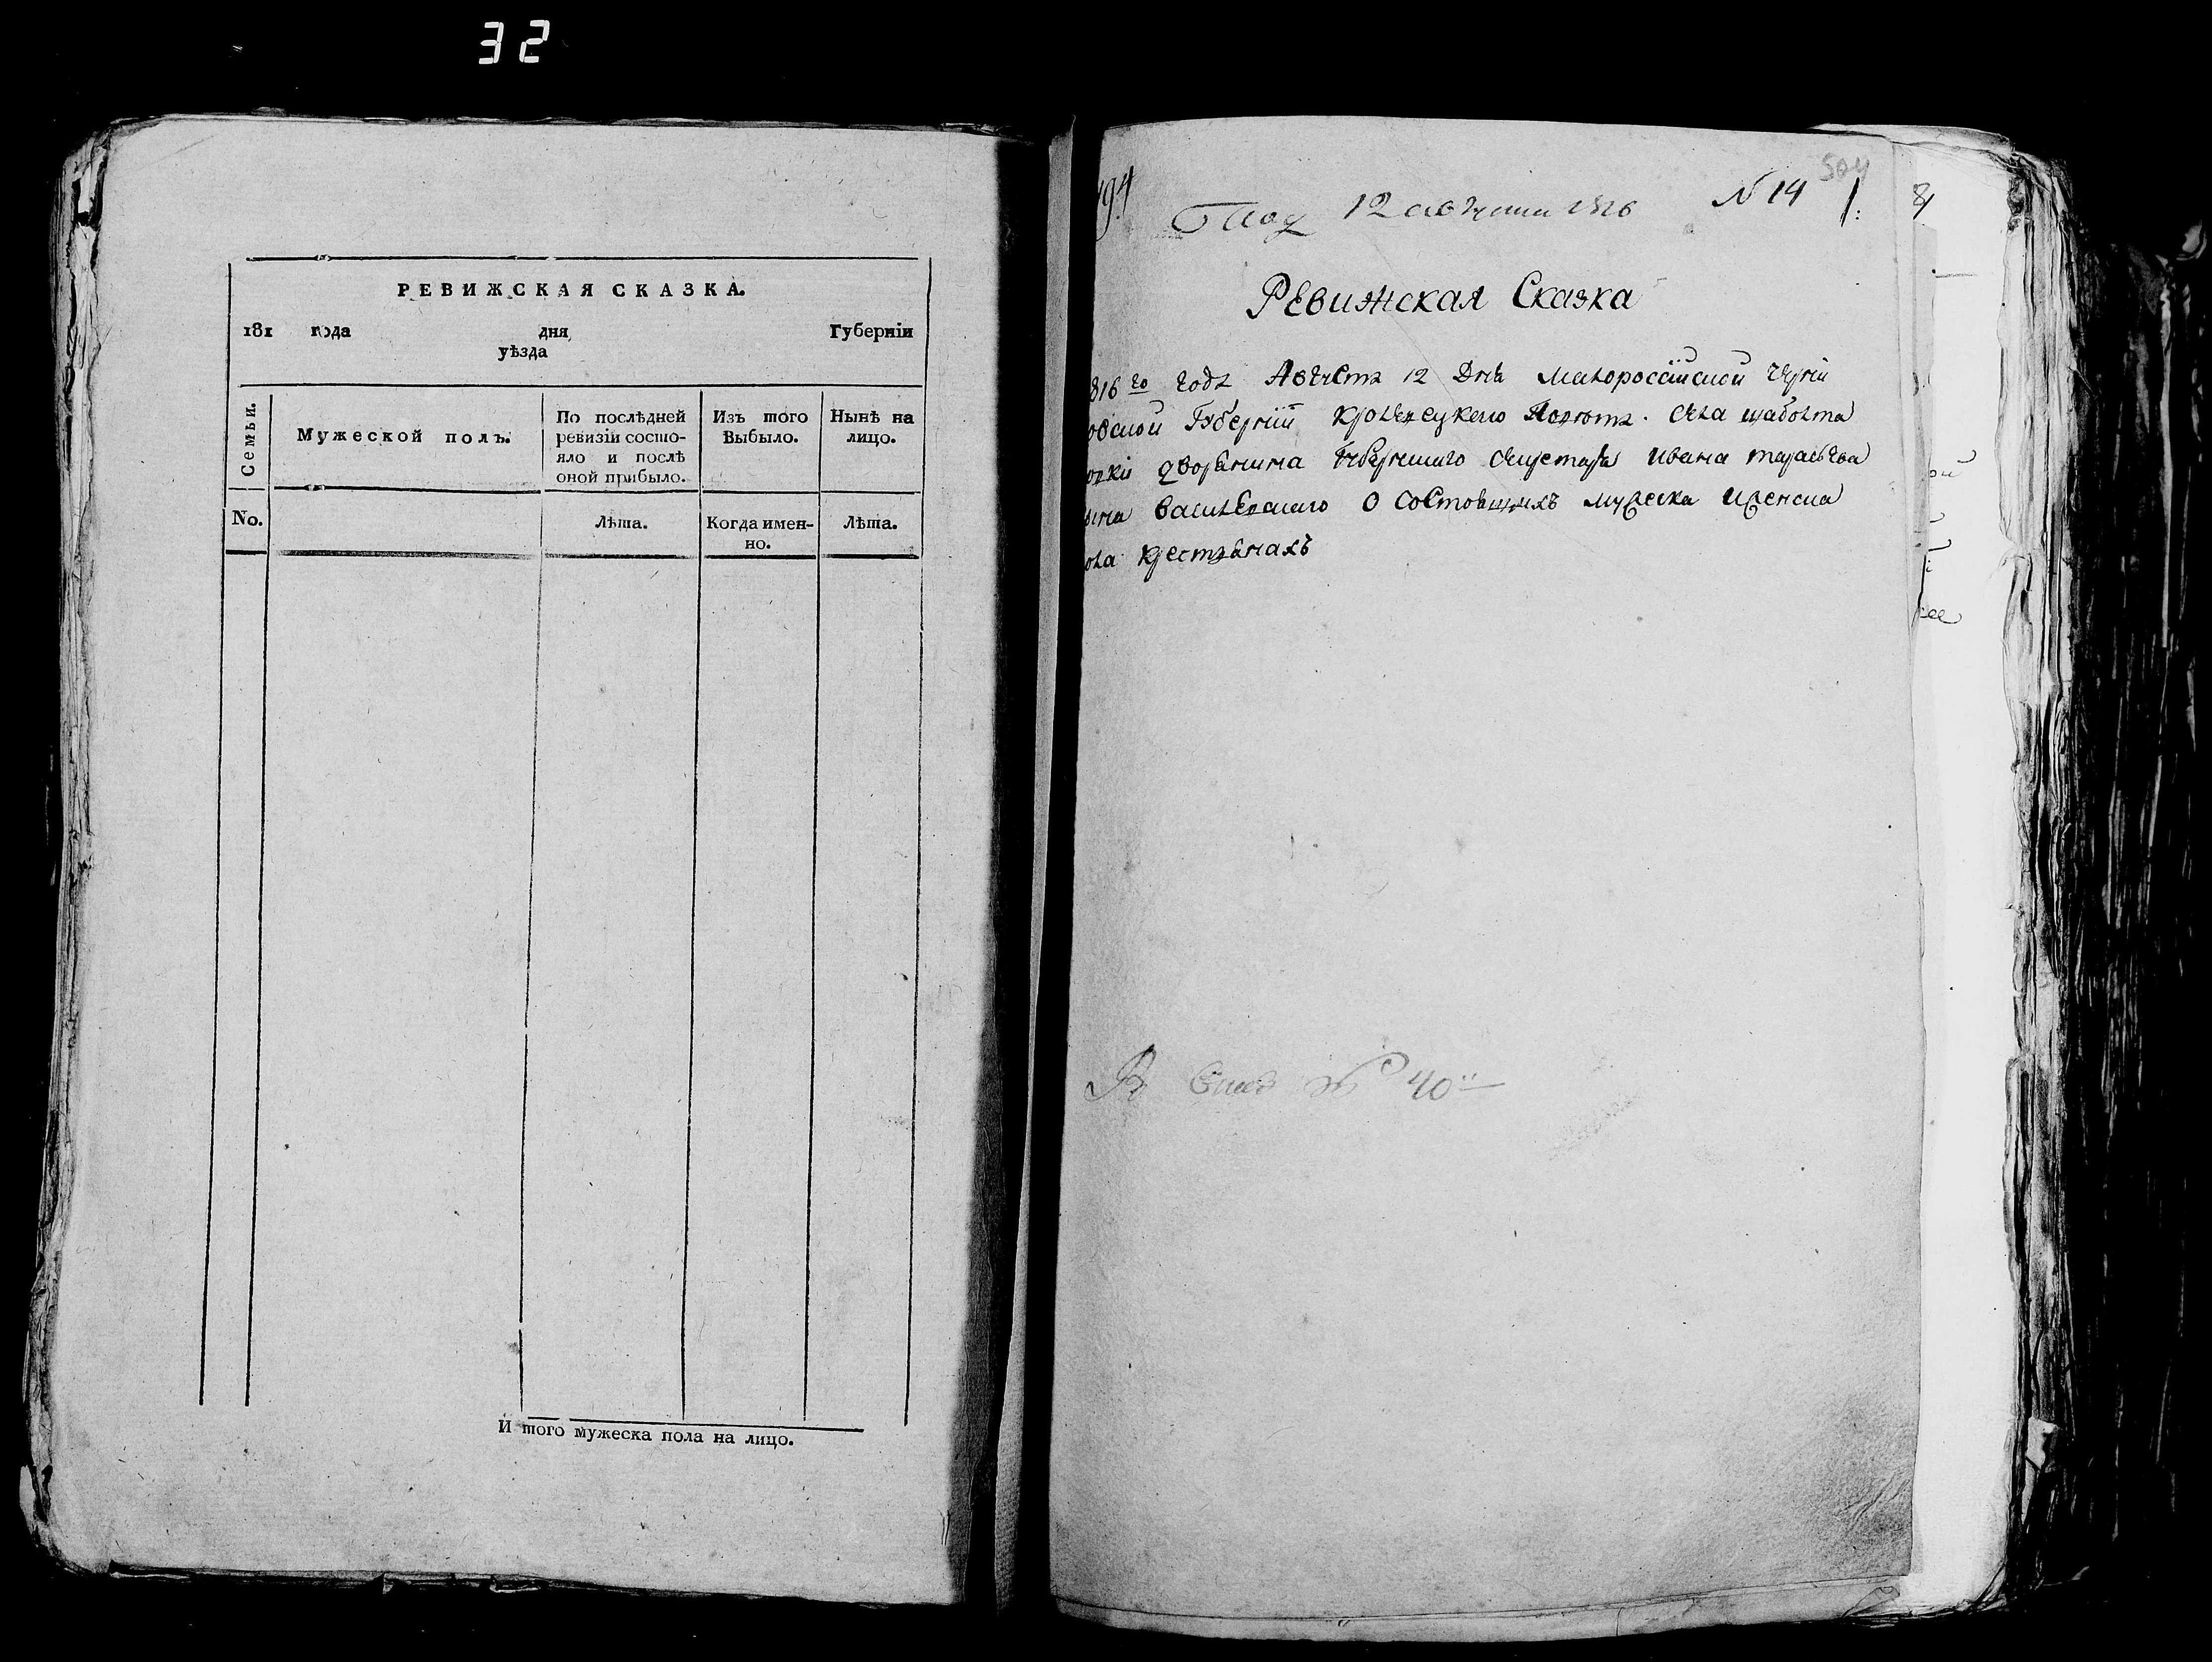 32
РЕВИЖСКАЯ СКАЗКА.
181 года дня Губерніи
уѣзда
Семьи.
Мужеской полъ.
По послѣдней
ревизіи состо-
яло и послѣ
оной прибыло.
Изъ того
Выбыло.
Нынѣ на
лицо.
No.
Лѣта.
Когда имен-
но.
Лѣта.
И того мужеска пола на лицо.
504
12 августа 1816 N 14
Ревижская Сказка
816го года Августа 12 Дня Малоросійской черни
овской Губерніи Кролевецкого Повѣта. Села
дворянина Губернскаго Ивана
Василевского О состоящихъ мужеска иженска
ола крестянахъ
№ 40